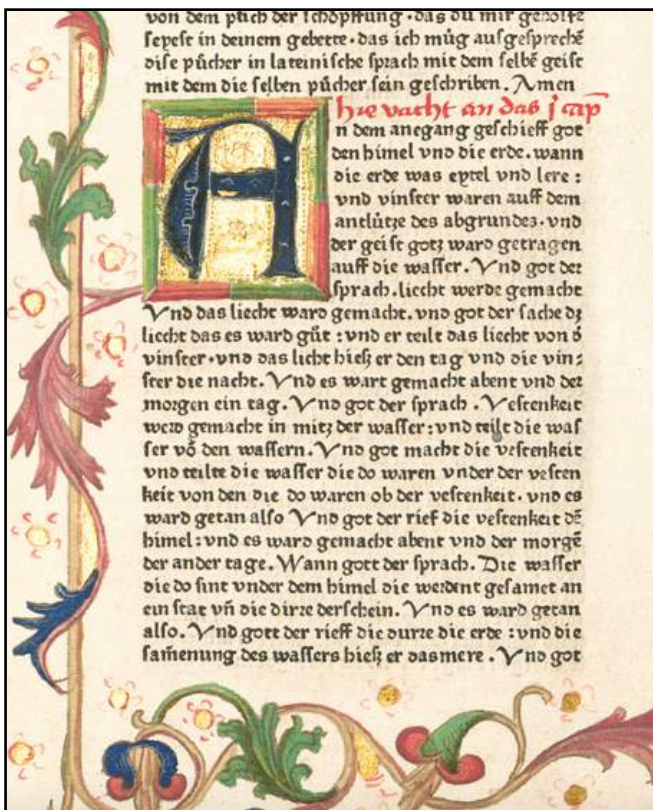 von dem puch der schöpffung·das du mir geholfe
sepest in deinem gebette·das ich müg aufgesprechē
dise pücher in lateinische sprach mit dem selbē geist
mit dem die selben pücher sein geschriben. Amen
hie vacht an das j cap
A
n dem anegang geschieff got
den himel vnd die erde.wann
die erde was eytel vnd lere :
vnd vinster waren auff dem
antlütze des abgrundes.vnd
der geist gotz ward getragen
auff die wasser. Vnd got der
sprach.liecht werde gemacht
Vnd das liecht ward gemacht.vnd got der sache dz
liecht das es ward gůt : vnd er teilt das liecht von d̄
vinster·vnd das licht hieß er den tag vnd die vin⸗
ster die nacht. Vnd es wart gemacht abent vnd der
morgen ein tag. Vnd got der sprach . Vestenkeit
werd gemacht in mitz der wasser : vnd teilt die was
ser vō den wassern. Vnd got macht die vestenkeit
vnd teilte die wasser die do waren vnder der vesten
keit von den die do waren ob der vestenkeit· vnd es
ward getan also Vnd got der rief die vestenkeit dē
himel : vnd es ward gemacht abent vnd der morgē
der ander tage. Wann gott der sprach. Die wasser
die do sint vnder dem himel die werdent gesamet an
ein stat vn̄ die dirre derschein. Vnd es ward getan
also. Vnd gott der rieff die durre die erde : vnd die
sam̄enung des wassers hieß er das mere . Vnd got